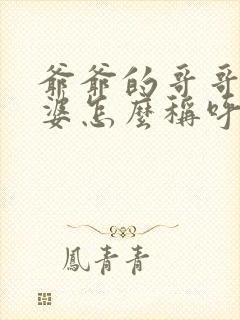 爺爺的哥哥
婆怎麼稱呼
鳳青青